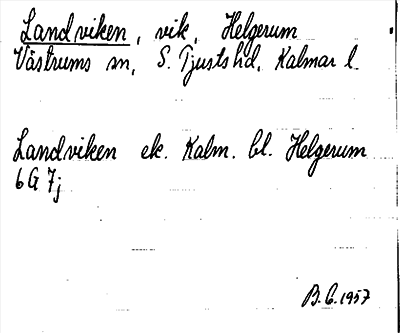 Landviken, vik, Helgerum
Västrums sn, S. Tjusts hd, Kalmar l.
Landviken ek. Kalm. bl. Helgerum
6G 7j
B.G. 1957